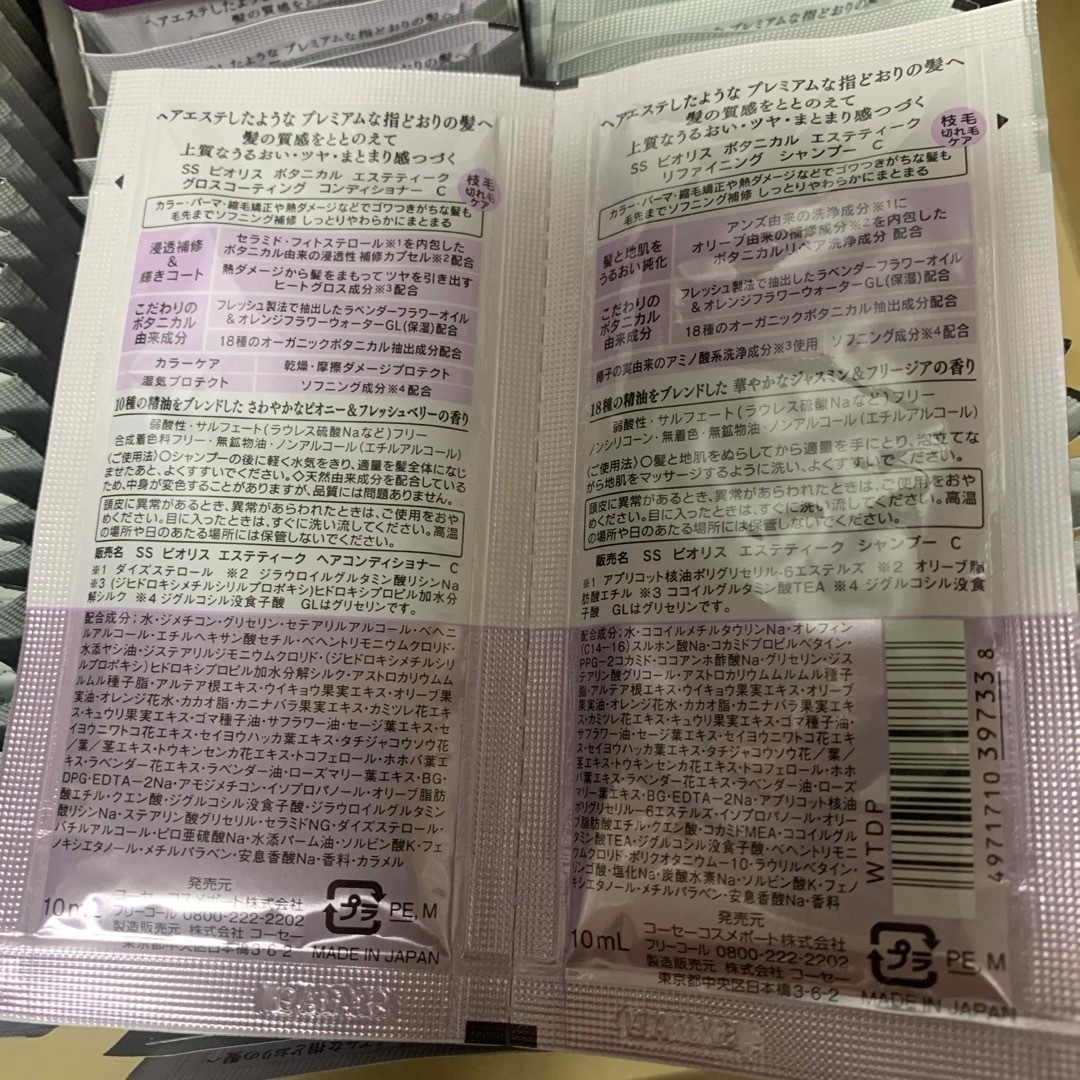 ヘアエステしたような プレミアムな指どおりの髪へ
髪の質感をととのえて
上質なうるおい・ツヤ・まとまり感つづく
SS ビオリス ボタニカル エステティーク
グロスコーティング コンディショナー C
枝毛
切れ毛
ケア
カラー・パーマ・縮毛矯正や熱ダメージなどでゴワつきがちな髪も
毛先までソフニング補修 しっとりやわらかにまとまる
浸透補修
&
輝きコート
セラミド・フィトステロール※1を内包した
ボタニカル由来の浸透性 補修カプセル※2配合
熱ダメージから髪をまもって ツヤを引き出す
ヒートグロス成分※3配合
こだわりの
ボタニカル
由来成分
フレッシュ製法で抽出したラベンダーフラワーオイル
&オレンジフラワーウォーターGL(保湿)配合
18種のオーガニックボタニカル抽出成分配合
カラーケア 乾燥・摩擦ダメージプロテクト
湿気プロテクト ソフニング成分※4配合
10種の精油をブレンドした さわやかなピオニー&フレッシュベリーの香り
弱酸性・サルフェート(ラウレス硫酸Naなど)フリー
合成着色料フリー・無鉱物油・ノンアルコール(エチルアルコール)
〈ご使用法〉○シャンプーの後に軽く水気をきり、適量を髪全体になじ
ませたあと、よくすすいでください。◇天然由来成分を配合している
ため、中身が変色することがありますが、品質には問題ありません。
頭皮に異常があるとき、異常があらわれたときは、ご使用をおや
めください。目に入ったときは、すぐに洗い流してください。高温
の場所や日のあたる場所には保管しないでください。
販売名 SS ビオリス エステティーク ヘアコンディショナー C
※1 ダイズステロール ※2 ジラウロイルグルタミン酸リシンNa
※3 (ジヒドロキシメチルシリルプロポキシ)ヒドロキシプロピル加水分
解シルク ※4 ジグルコシル没食子酸 GLはグリセリンです。
配合成分:水・ジメチコン・グリセリン・セテアリルアルコール・ベヘニ
ルアルコール・エチルヘキサン酸セチル・ベヘントリモニウムクロリド・
水添ヤシ油・ジステアリルジモニウムクロリド・(ジヒドロキシメチルシリ
ルプロポキシ)ヒドロキシプロピル加水分解シルク・アストロカリウムム
ルムル種子脂・アルテア根エキス・ウイキョウ果実エキス・オリーブ果
実油・オレンジ花水・カカオ脂・カニナバラ果実エキス・カミツレ花エキ
ス・キュウリ果実エキス・ゴマ種子油・サフラワー油・セージ葉エキス・セ
イヨウニワトコ花エキス・セイヨウハッカ葉エキス・タチジャコウソウ花
/葉/茎エキス・トウキンセンカ花エキス・トコフェロール・ホホバ葉エ
キス・ラベンダー花エキス・ラベンダー油・ローズマリー葉エキス・BG・
DPG・EDTA-2Na・アモジメチコン・イソプロパノール・オリーブ脂肪
酸エチル・クエン酸・ジグルコシル没食子酸・ジラウロイルグルタミン
酸リシンNa・ステアリン酸グリセリル・セラミドNG・ダイズステロール・
バチルアルコール・ピロ亜硫酸Na・水添パーム油・ソルビン酸K・フェ
ノキシエタノール・メチルパラベン・安息香酸Na・香料・カラメル
発売元
コーセーコスメポート株式会社
フリーコール 0800-222-2202
製造販売元 株式会社 コーセー
東京都中央区日本橋3-6-2
10mL
プラ
PE, M
MADE IN JAPAN
ヘアエステしたような プレミアムな指どおりの髪へ
髪の質感をととのえて
上質なうるおい・ツヤ・まとまり感つづく
SS ビオリス ボタニカル エステティーク
リファイニング シャンプー C
枝毛
切れ毛
ケア
カラー・パーマ・縮毛矯正や熱ダメージなどでゴワつきがちな髪も
毛先までソフニング補修 しっとりやわらかにまとまる
髪と地肌を
うるおい純化
アンズ由来の洗浄成分※1に
オリーブ由来の補修成分※2を内包した
ボタニカルリペア洗浄成分 配合
こだわりの
ボタニカル
由来成分
フレッシュ製法で抽出したラベンダーフラワーオイル
&オレンジフラワーウォーターGL(保湿)配合
18種のオーガニックボタニカル抽出成分配合
椰子の実由来のアミノ酸系洗浄成分※3使用 ソフニング成分※4配合
18種の精油をブレンドした 華やかなジャスミン&フリージアの香り
弱酸性・サルフェート(ラウレス硫酸Naなど)フリー
ノンシリコーン・無着色・無鉱物油・ノンアルコール(エチルアルコール)
〈ご使用法〉○髪と地肌をぬらしてから適量を手にとり、泡立てな
がら地肌をマッサージするように洗い、よくすすいでください。
頭皮に異常があるとき、異常があらわれたときは、ご使用をおや
めください。目に入ったときは、すぐに洗い流してください。高温
の場所や日のあたる場所には保管しないでください。
販売名 SS ビオリス エステティーク シャンプー C
※1 アプリコット核油ポリグリセリル-6エステルズ ※2 オリーブ脂
肪酸エチル ※3 ココイルグルタミン酸TEA ※4 ジグルコシル没食
子酸 GLはグリセリンです。
配合成分:水・ココイルメチルタウリンNa・オレフィン
(C14-16)スルホン酸Na・コカミドプロピルベタイン・
PPG-2コカミド・ココアンホ酢酸Na・グリセリン・ジス
テアリン酸グリコール・アストロカリウムムルムル種子
脂・アルテア根エキス・ウイキョウ果実エキス・オリーブ
果実油・オレンジ花水・カカオ脂・カニナバラ果実エキ
ス・カミツレ花エキス・キュウリ果実エキス・ゴマ種子油・
サフラワー油・セージ葉エキス・セイヨウニワトコ花エキ
ス・セイヨウハッカ葉エキス・タチジャコウソウ花/葉/
茎エキス・トウキンセンカ花エキス・トコフェロール・ホホ
バ葉エキス・ラベンダー花エキス・ラベンダー油・ローズ
マリー葉エキス・BG・EDTA-2Na・アプリコット核油
ポリグリセリル-6エステルズ・イソプロパノール・オリー
ブ脂肪酸エチル・クエン酸・コカミドMEA・ココイルグル
タミン酸TEA・ジグルコシル没食子酸・ベヘントリモニ
ウムクロリド・ポリクオタニウム-10・ラウリルベタイン・
リンゴ酸・塩化Na・炭酸水素Na・ソルビン酸K・フェノ
キシエタノール・メチルパラベン・安息香酸Na・香料
WTDP
4971710397338
発売元
コーセーコスメポート株式会社
フリーコール 0800-222-2202
製造販売元 株式会社 コーセー
東京都中央区日本橋3-6-2
10mL
プラ
PE, M
MADE IN JAPAN